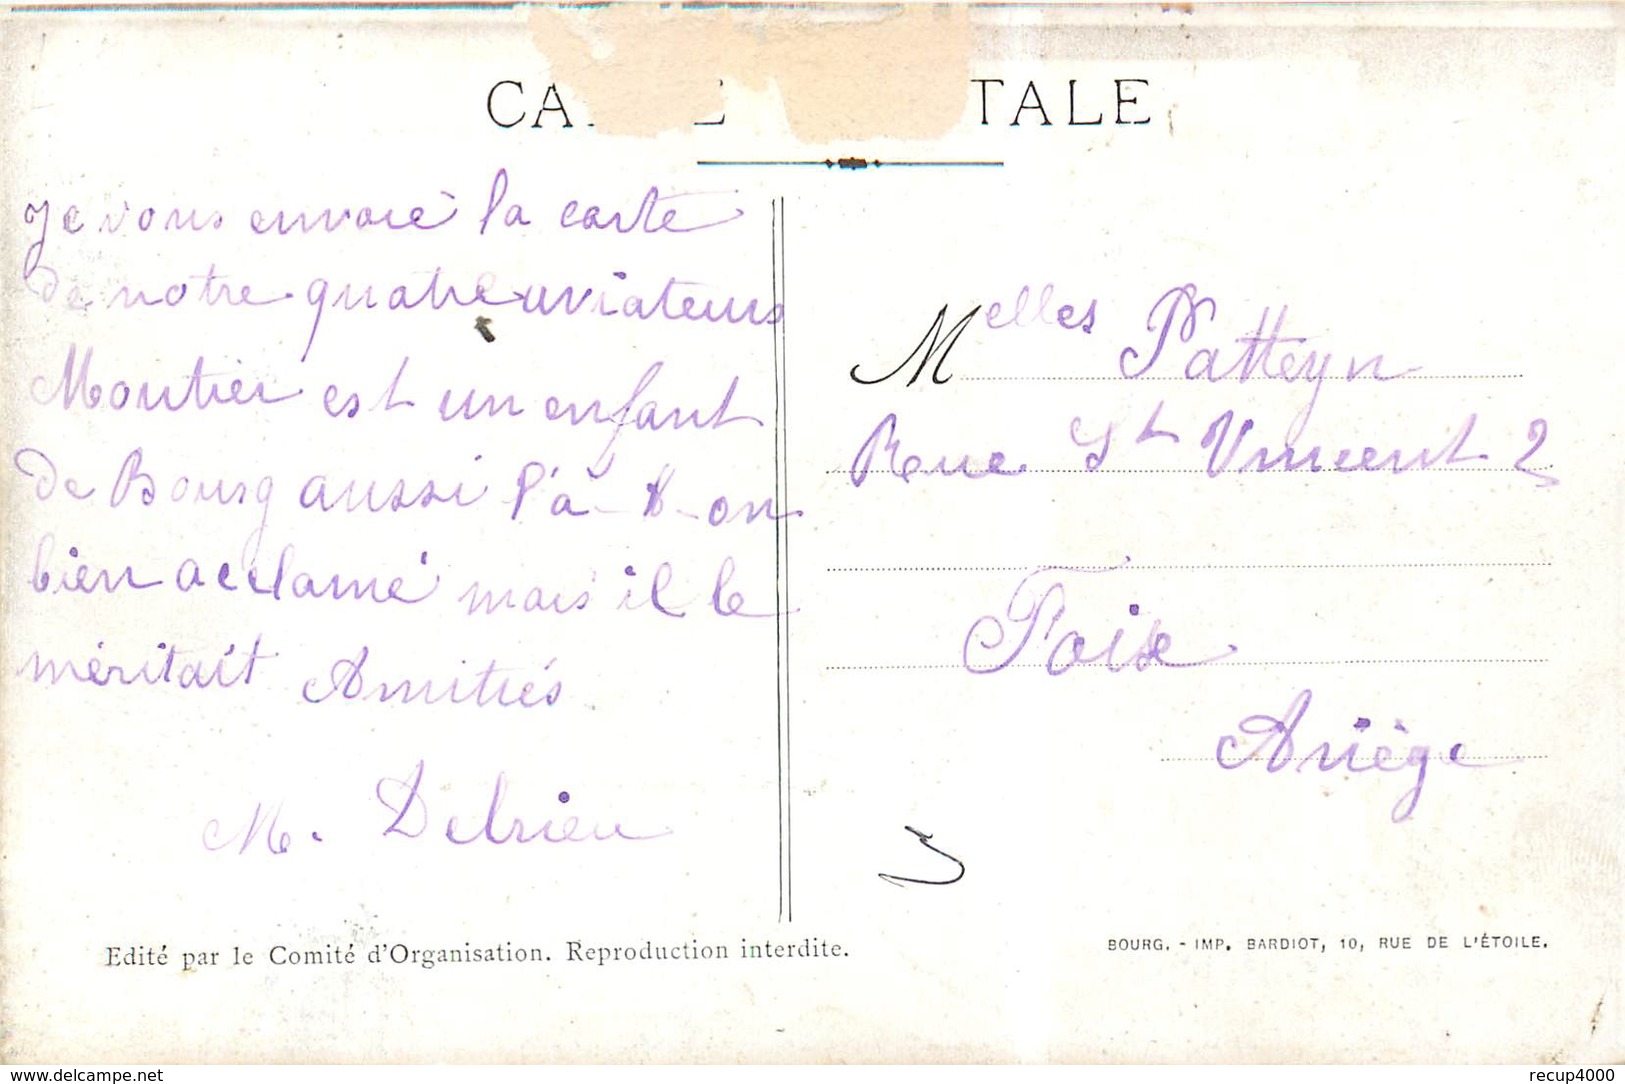 CA E TALE
Je vous envoie la carte
de notre quatre aviateurs
Moutier est un enfant
de Bourg aussi l'a-t-on
bien acclamé mais il le
méritait Amitiés
M. Delrieu
Melles Patteyn
Rue St Vincent 2
Foix
Ariège
Edité par le Comité d'Organisation. Reproduction interdite.
BOURG. - IMP. BARDIOT, 10, RUE DE L'ÉTOILE.
www.delcampe.net
recup4000